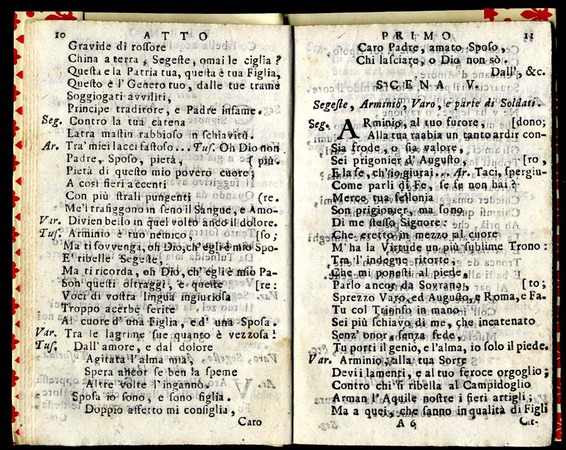 10 ATTO
Gravide di rossore
China a terra, Segeste, omai le ciglia?
Questa e la Patria tua, questa è tua Figlia,
Questo è l'Genero tuo, dalle tue trame
Soggiogati avviliti,
Principe traditore, e Padre infame.
Seg. Contro la tua catena
Latra mastin rabbioso in schiavitù.
Ar. Tra' miei lacci fastoso... Tus. Oh Dio non
Padre, Sposo, pietà, { più.
Pietà di questo mio povero cuore;
A così fieri accenti
Con più strali pungenti (re.
Me'l trafiggono in seno il Sangue, e Amo-
Var. Divien bello in quel volto anco il dolore.
Tus. Arminio è tuo nemico, [so;
Ma ti sovvenga, oh Dio, ch'egli è mio Spo-
E' ribelle Segeste,
Ma ti ricorda, oh Dio, ch'egli è mio Pa-
Son questi oltraggi, e queste [re:
Voci di vostra lingua ingiuriosa
Troppo acerbe ferite
Al cuore d'una Figlia, e d'una Sposa.
Var. Tra le lagrime sue quanto è vezzosa!
Tus. Dall'amore, e dal dolore
Agitata l'alma mia,
Spera ancor se ben la speme
Altre volte l'ingannò.
Sposa io sono, e sono figlia.
Doppio affetto mi consiglia,
Caro
PRIMO 11
Caro Padre, amato Sposo,
Chi lasciare, o Dio non sò.
Dall', &c.
SCENA V.
Segeste, Arminio, Varo, e parte di Soldati.
Seg. ARminio, al tuo furore, [dono;
Alla tua rabbia un tanto ardir con-
Sia frode, o sia valore,
Sei prigionier d'Augusto, [ro,
E la fe, ch'io giurai... Ar. Taci, spergiu-
Come parli di Fe, se fu non hai?
Merce tua fellonia
Son prigionier, ma sono
Di me stesso Signore:
Che eretto in mezzo al cuore
M'ha la Virtude un più sublime Trono:
Tra l'indegne ritorte
Che mi ponesti al piede
Parlo ancor da Sovrano, [to;
Sprezzo Varo, ed Augusto, e Roma, e Fa-
Tu col Trionfo in mano
Sei più schiavo di me, che incatenato
Senz' onor, senza fede,
Tu porti il genio, e l'alma, io solo il piede.
Var. Arminio, alla tua Sorte
Devi i lamenti, e al tuo feroce orgoglio;
Contro chi si ribella al Campidoglio
Arman l'Aquile nostre i fieri artigli;
Ma a quei, che sanno in qualità di Figli
A 6 Cir-